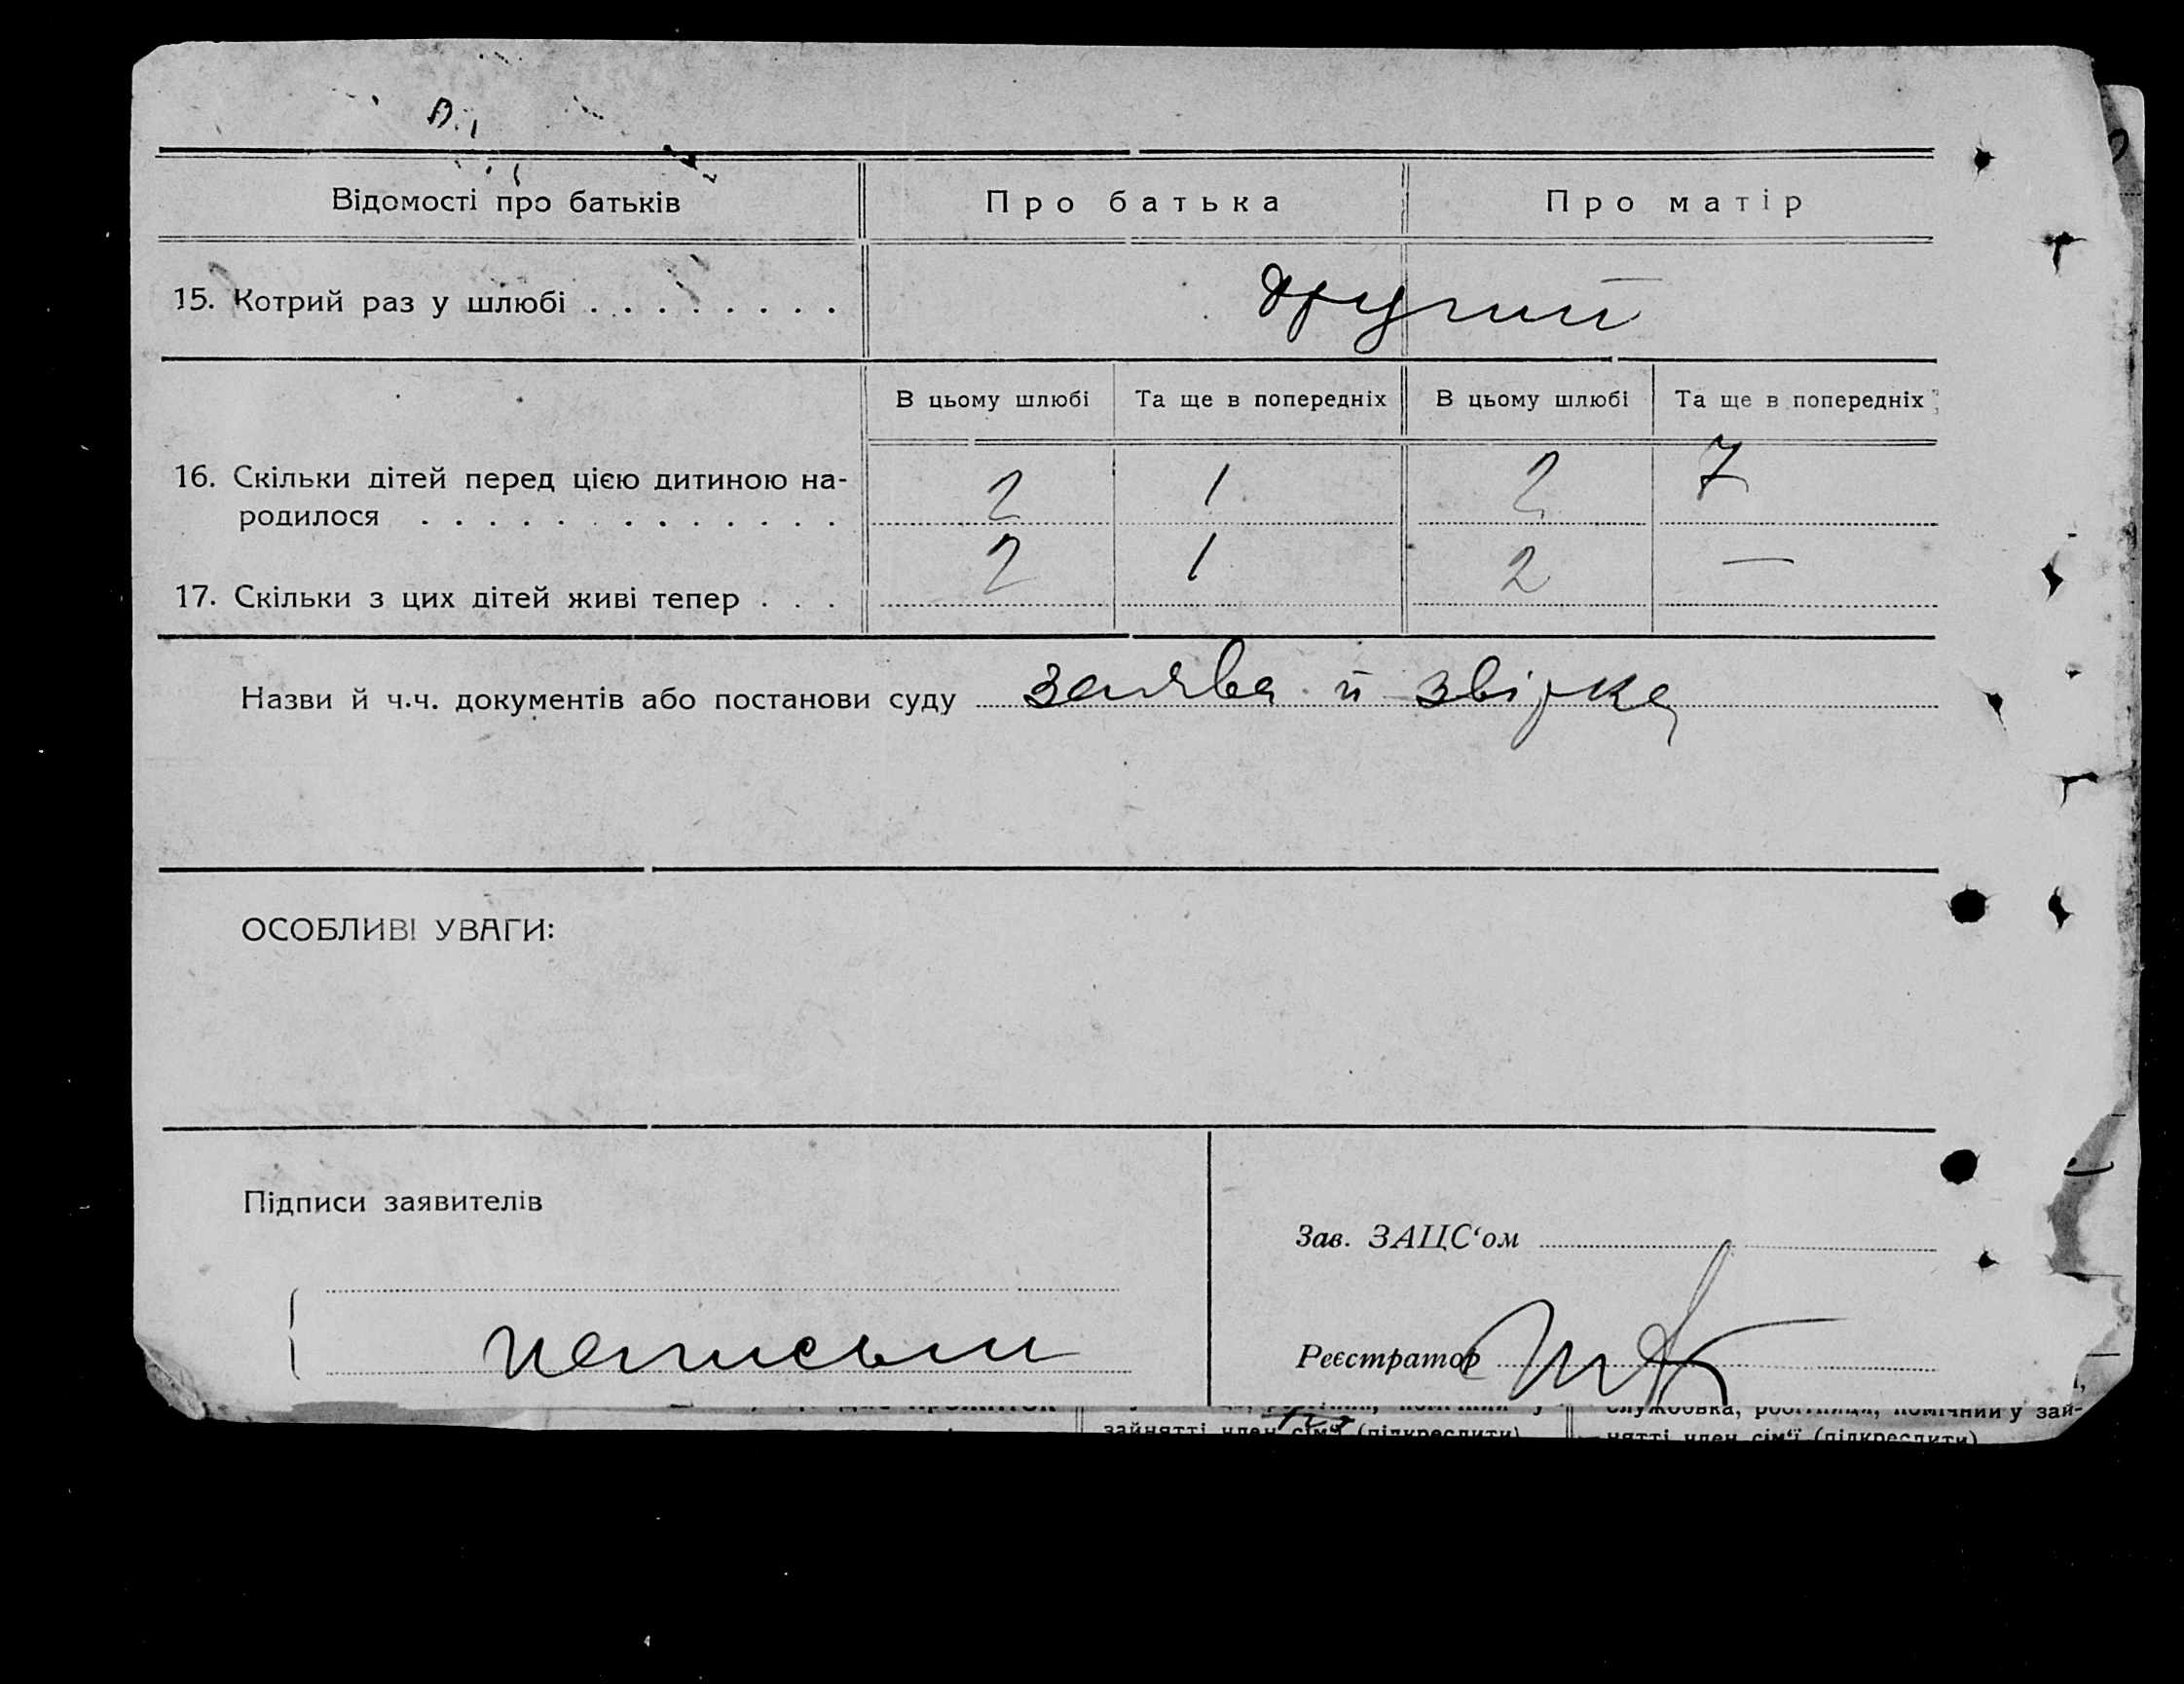 Відомості про батьків Про батька Про матір
15. Котрий раз у шлюбі . . . . . . . . другий
В цьому шлюбі Та ще в попередніх В цьому шлюбі Та ще в попередніх
16. Скільки дітей перед цією дитиною на-
родилося . . . . . . . . . . . . 2 1 2 7
17. Скільки з цих дітей живі тепер . . . 2 1 2 —
Назви й ч.ч. документів або постанови суду заява й звірка
ОСОБЛИВІ УВАГИ:
Підписи заявителів
Зав. ЗАЦС‘ом
неписьм
Реєстратор
службовка, робітниця, помічний у зай-
зайнятті член сім‘ї (підкреслити)
нятті член сім‘ї (підкреслити)